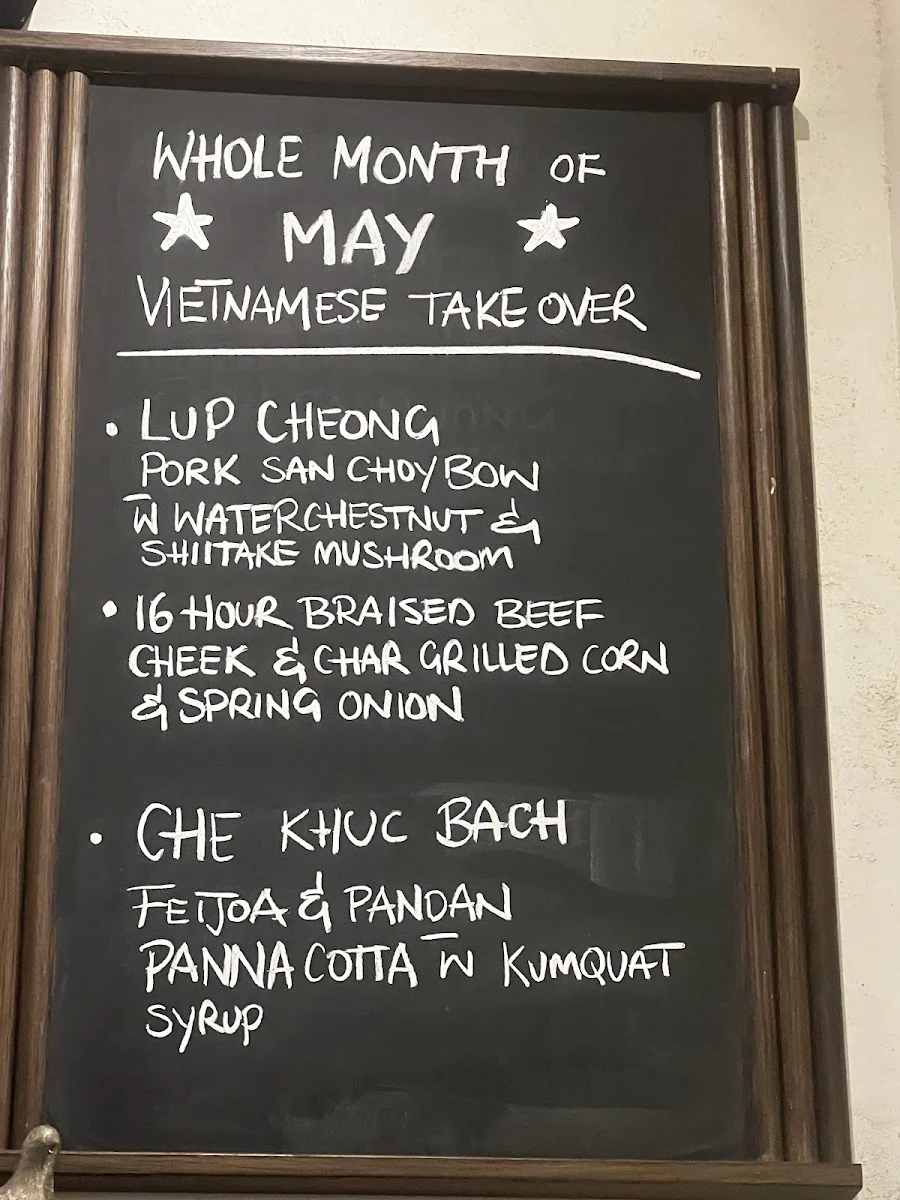 WHOLE MONTH OF
MAY
VIETNAMESE TAKE OVER
• LUP CHEONG
PORK SAN CHOY BOW
W̅ WATERCHESTNUT &
SHIITAKE MUSHROOM
• 16 HOUR BRAISED BEEF
CHEEK & CHAR GRILLED CORN
& SPRING ONION
• CHE KHUC BACH
FEIJOA & PANDAN
PANNA COTTA W̅ KUMQUAT
SYRUP